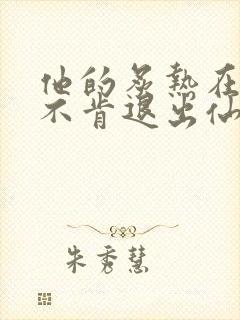 他的炙热在
不肯退出仙
朱秀慧